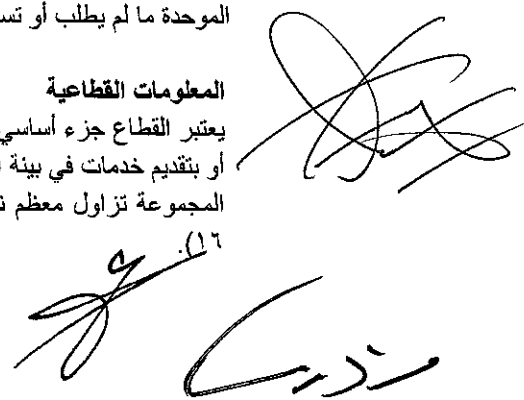 الموحدة ما لم يطلب أو تس
المعلومات القطاعية
يعتبر القطاع جزء أساسي
أو بتقديم خدمات في بيئة
المجموعة تزاول معظم
١٦).